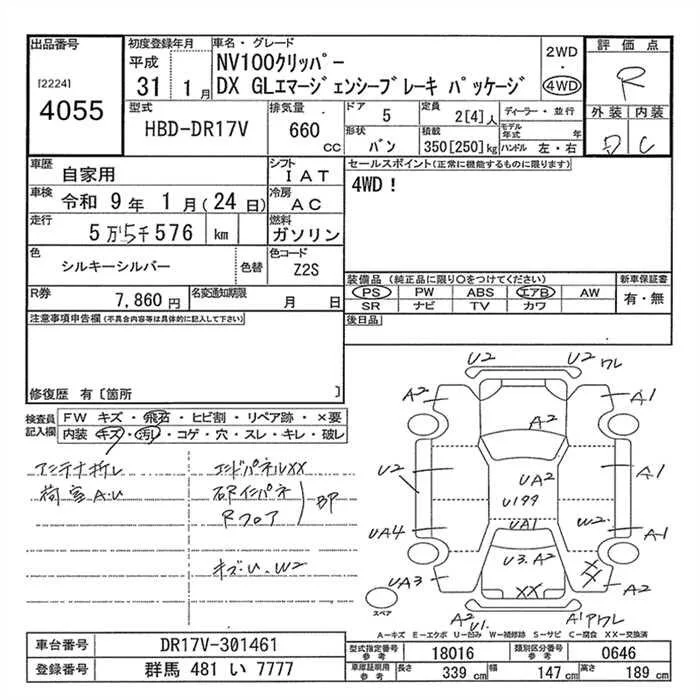 出品番号
[2224]
4055
初度登録年月
平成
31 1 月
車名・グレード
NV100クリッパー
DX GLエマージェンシーブレーキ パッケージ
2WD
・
4WD
評価点
R
外装 内装
D C
型式
HBD-DR17V
排気量
660 cc
ドア 5
形状 バン
定員 2[4]人
積載 350[250]kg
ディーラー・並行
モデル年式 年
ハンドル 左・右
車歴 自家用
シフト IAT
車検 令和 9 年 1 月(24 日)
冷房 AC
走行 5万5千576 km
燃料 ガソリン
色 シルキーシルバー 色替
色コード Z2S
R券 7,860 円
名変通知期限 月 日
セールスポイント(正常に機能するものに限ります)
4WD！
装備品 (純正品に限り○をつけてください)
新車保証書
PS PW ABS エアB AW
SR ナビ TV カワ
有・無
後日品
注意事項申告欄(不具合内容等は具体的に記入して下さい)
修復歴 有〔箇所 〕
検査員記入欄
FW キズ・飛石・ヒビ割・リペア跡・×要
内装 キズ・汚レ・コゲ・穴・スレ・キレ・破レ
アンテナ折レ
荷室A.U
エンドパネルXX
Rフロア
BP
キズ・U.W2
U2 U2 ワレ
A2 A1
A2
U2 UA2 A1
U199
UA4 UA1 W2 A1
U3.A2
UA3 XX XX A2
A2 U1. A1 アワレ
スペア
A－キズ E－エクボ U－凹み W－補修跡 S－サビ C－腐食 XX－交換済
車台番号 DR17V-301461
登録番号 群馬 481 い 7777
型式指定番号 参考 18016
類別区分番号 参考 0646
車庫証明用 参考 長さ 339 cm 幅 147 cm 高さ 189 cm